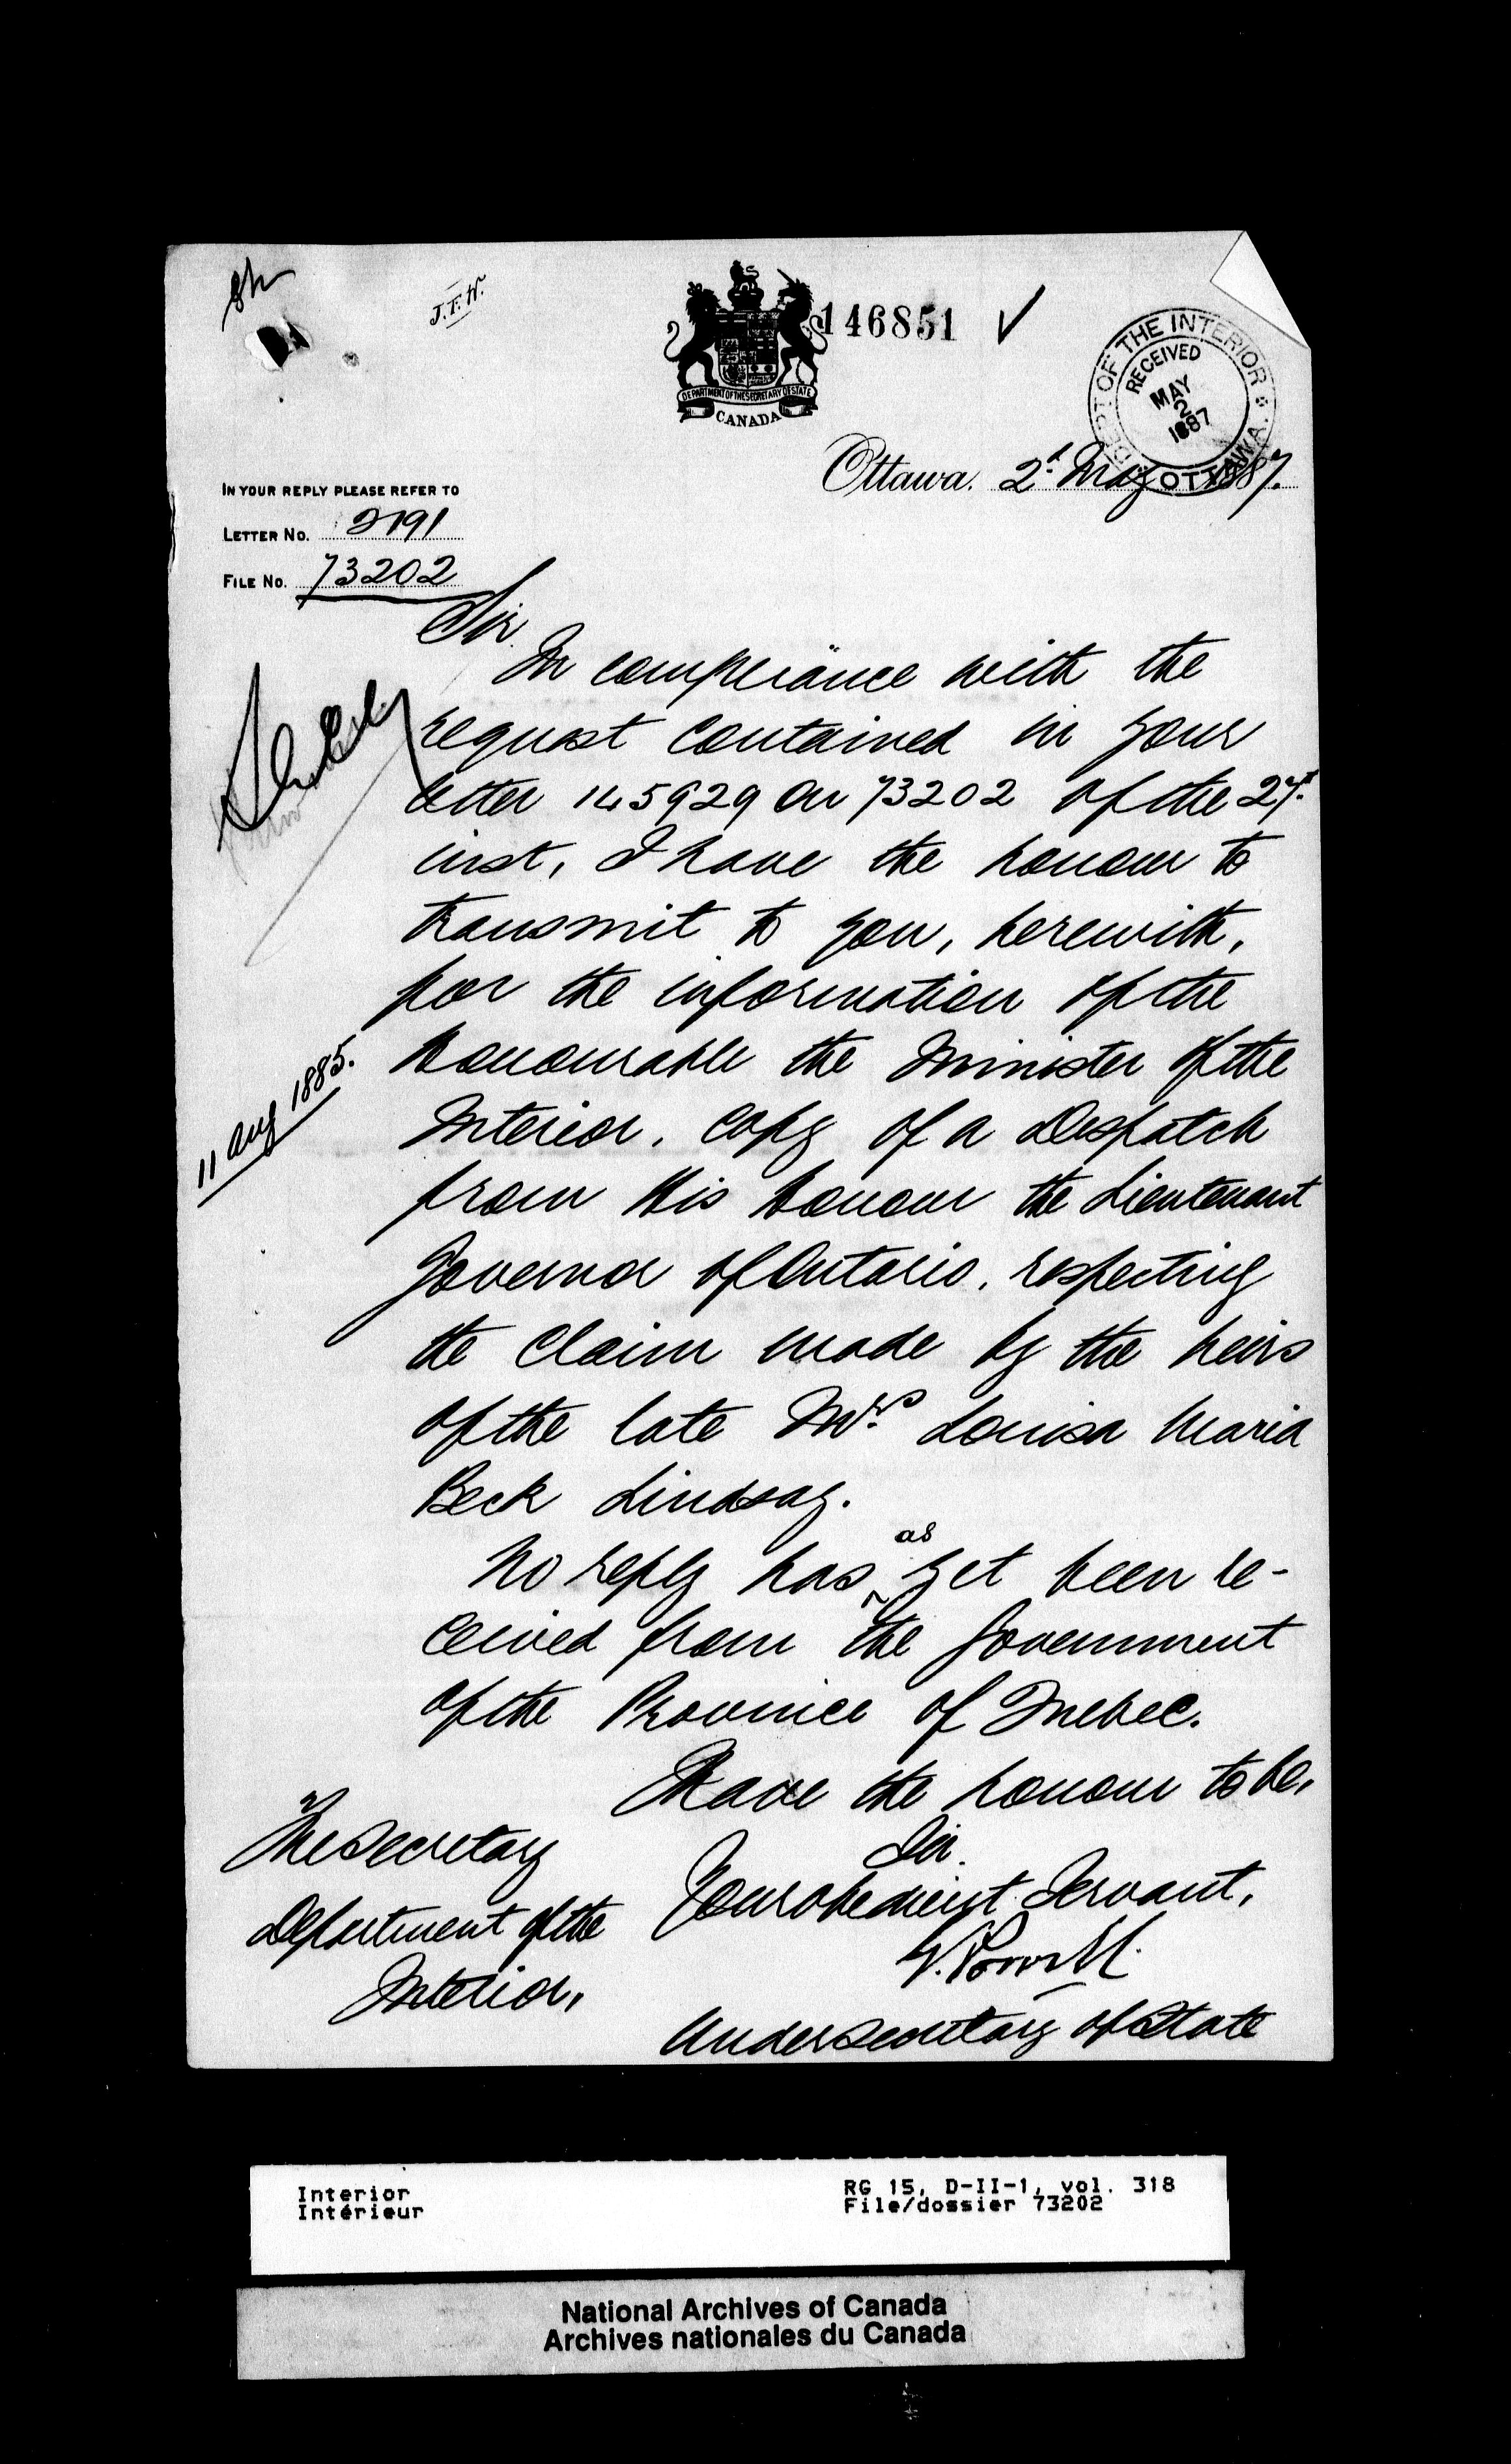 J.F.W.
146851
DEPARTMENT OF THE SECRETARY OF STATE
CANADA
DEPT OF THE INTERIOR
RECEIVED
MAY
2
1887
OTTAWA.
Ottawa. 2d. May 1887.
IN YOUR REPLY PLEASE REFER TO
LETTER No. 2191
FILE No. 73202
Sir,
In compliance with the
request contained in your
letter 145929 on 73202 of the 27th.
inst, I have the honour to
transmit to you, herewith,
for the information of the
Honourable the Minister of the
11 Aug 1885.
Interior, copy of a Despatch
from His Honour the Lieutenant
Governor of Ontario, respecting
the claim made by the heirs
of the late Mrs. Louisa Maria
Beck Lindsay.
No reply has as yet been re-
ceived from the Government
of the Province of Quebec.
I have the honour to be,
Sir,
Your obedient Servant,
The Secretary
Department of the
Interior,
G. Powell.
Under Secretary of State
Interior
Intérieur
RG 15, D-II-1, vol. 318
File/dossier 73202
National Archives of Canada
Archives nationales du Canada